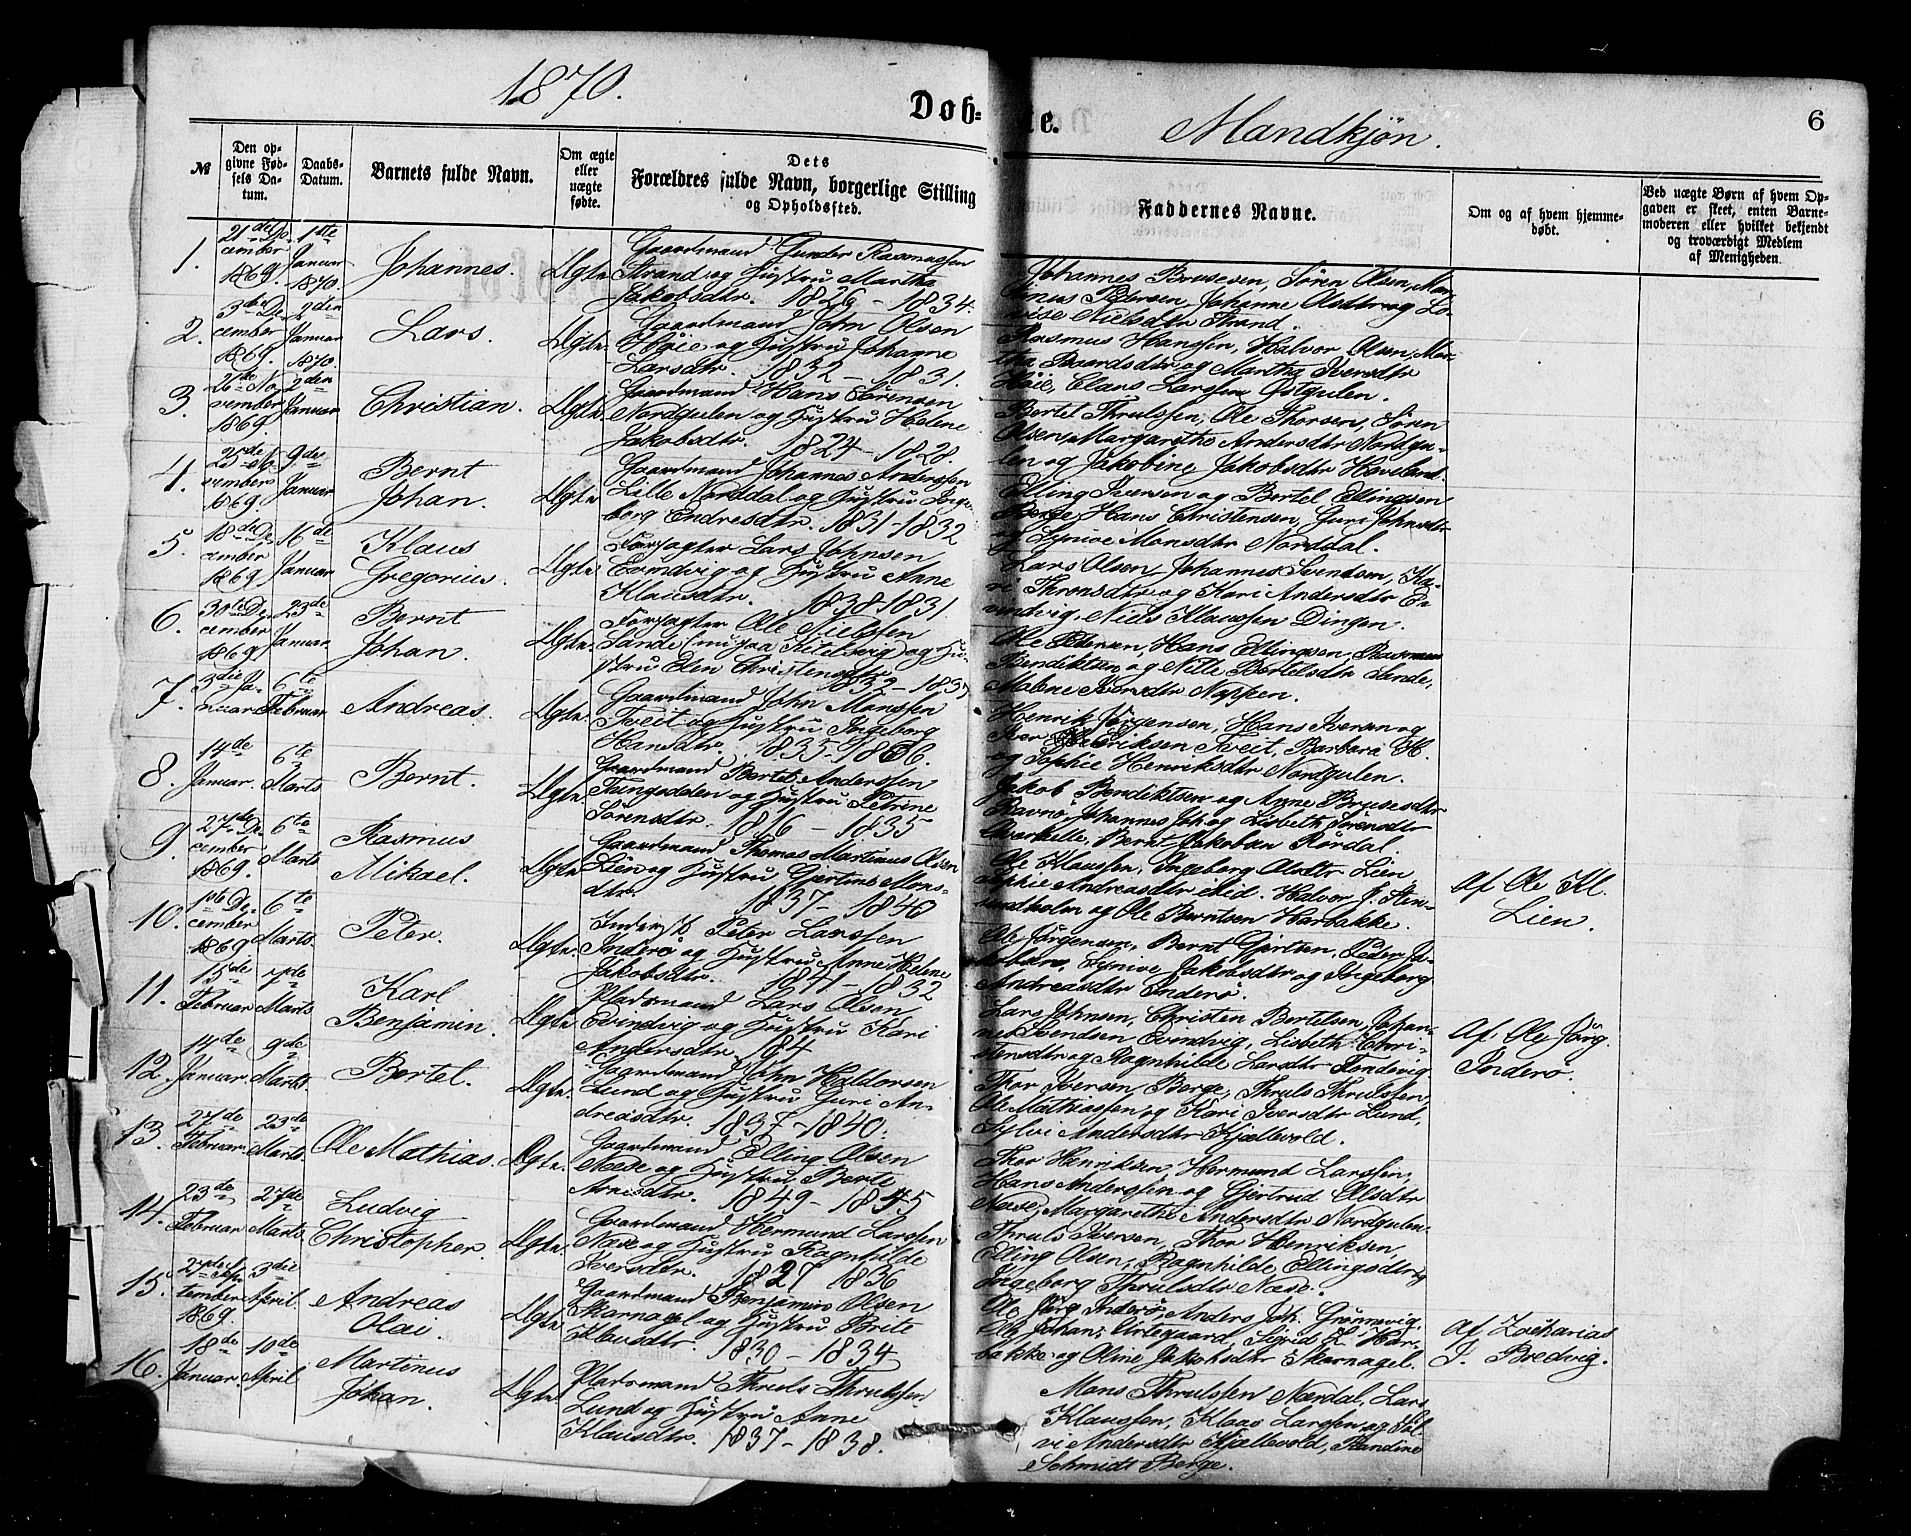 1870.
Døb-
te.
Mandkjøn.
6
№
Den op-
givne Fød-
sels Da-
tum.
Daabs-
Datum.
Barnets fulde Navn.
Om ægte
eller
uægte
fødte.
Dets
Forældres fulde Navn, borgerlige Stilling
og Opholdssted.
Faddernes Navne.
Om og af hvem hjemme-
døbt.
Ved uægte Børn af hvem Op-
gaven er skeet, enten Barne-
moderen eller hvilket bekjendt
og troværdigt Medlem
af Menigheden.
1.
21de De-
cember
1869.
1ste
Januar
1870.
Johannes.
Ægte.
Gaardmand Gunder Rasmussen
Strand og Hustru Martha
Jakobsdtr. 1826 - 1834.
Johannes Brusesen, Sören Olsen, Mar-
tinus Pedersen, Johanne Olsdtr og Lo-
vise Nielsdtr Strand.
2.
3de De-
cember
1869.
2den
Januar
1870.
Lars.
Ægte.
Gaardmand John Olsen
Höie og Hustru Johanne
Larsdtr. 1832 - 1831.
Rasmus Hanssen, Halvor Olsen, Mar-
tha Baardsdtr og Martha Iversdtr
Höie, Claus Larssen Østgulen.
3.
26de No-
vember
1869
2den
Januar
Christian.
Ægte.
Gaardmand Hans Sörensen
Nordgulen og Hustru Helene
Jakobsdtr. 1824 - 1828.
Bertel Thrulssen, Ole Thorsen, Sören
Olsen, Margarethe Andersdtr Nordgu-
len og Jakobine Jakobsdtr Haveland.
4.
25de No-
vember
1869.
9de
Januar
Bernt
Johan.
Ægte.
Gaardmand Johannes Anderssen
Lille Norddal og Hustru Inge-
borg Endresdtr. 1831-1832
Elling Iversen og Bertel Ellingsen
Berge, Hans Christensen, Guri Johnsdtr
og Synive Monsdtr Norddal.
5.
18de De-
cember
1869
16de
Januar
Klaus
Gregorius.
Ægte.
Forsagter Lars Johnsen
Evindvig og Hustru Anne
Klausdtr. 1838-1831.
Lars Olsen, Johannes Svendsen, Ka-
ri Thronsdtr og Kari Andersdtr E-
vindvig, Niels Klaussen Dingen.
6.
30te De-
cember
1869
23de
Januar
Bernt
Johan.
Ægte.
Forsagter Ole Nielssen
Sande (nu paa Kitelsvig) og Hu-
stru Elen Christensdtr
1832-1835
Ole Pedersen, Hans Ellingsen, Rasmus
Bendiktsen og Nille Bertelsdtr Sande,
Malene Iversdtr Nappen.
7.
3die Ja-
nuar
6te
Februar
Andreas.
Ægte.
Gaardmand John Monssen
Tveit og Hustru Ingeborg
Hansdtr. 1835-1836.
Henrik Jörgensen, Hans Iversen og
Iver Eriksen Tveit, Barbara H.
og Sophie Henriksdtr Nordgulen.
8.
14de
Januar.
6te
Marts
Bernt.
Ægte.
Gaardmand Bertel Anderssen
Tungodden og Hustru Petrine
Sörensdtr. 1816 - 1835
Jakob Bendiktsen og Anne Brusesdtr
Ravnö, Johannes Joh og Lisbeth Sörensdtr
Qvarhelle, Bernt Jakobsen Rördal.
9.
27de De-
cember
1869.
6te
Marts
Rasmus
Mikael.
Ægte.
Gaardmand Thomas Martinus Olsen
Lien og Hustru Gjertine Mons-
dtr. 1837 - 1840
Ole Klaussen, Ingeborg Olsdtr Lien,
Sophie Andreasdtr Eid. Halvor J. Sten-
sundholm og Ole Berntsen Harbakke.
Af Ole Kl.
Lien.
10.
1ste De-
cember
1869
6te
Marts.
Peter.
Ægte.
Inderst Peter Larssen
Inderö og Hustru Anne Helene
Jakobsdtr. 1841 - 1832
Ole Jörgensen, Bernt Gjertsen, Peder Ja-
kobsen, Synive Jakobsdtr og Ingeborg
Andreasdtr Inderö.
Af Ole Jörg.
Inderö.
11.
15de
Februar
7de
Marts
Karl
Benjamin.
Ægte.
Pladsmand Lars Olsen
Evindvig og Hustru Kari
Andersdtr. 184
Lars Johnsen, Christen Bertelsen, Johan-
nes Svendsen Evindvig, Lisbeth Chri-
stensdtr og Ragnhilde Larsdtr Flendevig.
12.
14de
Januar
9de
Marts.
Bertel.
Ægte.
Gaardmand John Haldorsen
Lund og Hustru Guri An-
dreasdtr. 1837-1840.
Thor Iversen Berge, Thruls Thrulssen,
Ole Mathiassen og Kari Iversdtr Lund,
Sylvi Andersdtr Kjellevold.
13.
27de
Februar
23de
Marts.
Ole Mathias.
Ægte.
Gaardmand Elling Olsen
Næse og Hustru Berte
Arnisdtr. 1849 - 1845
Thor Henriksen, Hermund Larssen,
Hans Anderssen og Gjertrud Olsdtr
Næse, Margarethe Andersdtr Nordgulen.
14.
23de
Februar
27de
Marts.
Ludvig
Christopher.
Ægte.
Gaardmand Hermund Larssen
Næse og Hustru Ragnhilde
Iversdtr. 1827 1836
Thruls Iversen, Thor Henriksen,
Elling Olsen, Ragnhilde Ellingsdtr og
Ingeborg Thrulsdtr Næse.
15.
27de Sep-
tember
1869.
3die
April.
Andreas
Olai.
Ægte.
Gaardmand Benjamin Olsen
Skarnagel og Hustru Brite
Klausdtr. 1830 - 1834
Ole Jörg Inderö, Anders Joh. Grönnevig,
Ole Johan; Urtegaard, Sigrid L. Har-
bakke og Oline Jakobsdtr Skarnagel.
Af Zacharias
J. Bredvig.
16.
18de
Januar.
10de
April
Martinus
Johan.
Ægte.
Pladsmand Thruls Thrulssen
Lund og Hustru Anne
Klausdtr. 1837 - 1838.
Mons Thrulssen Nordal, Lars
Klaussen, Klaas Larssen og Syl-
vi Andersdtr Kjellevold, Randine
Schmidt Berge.